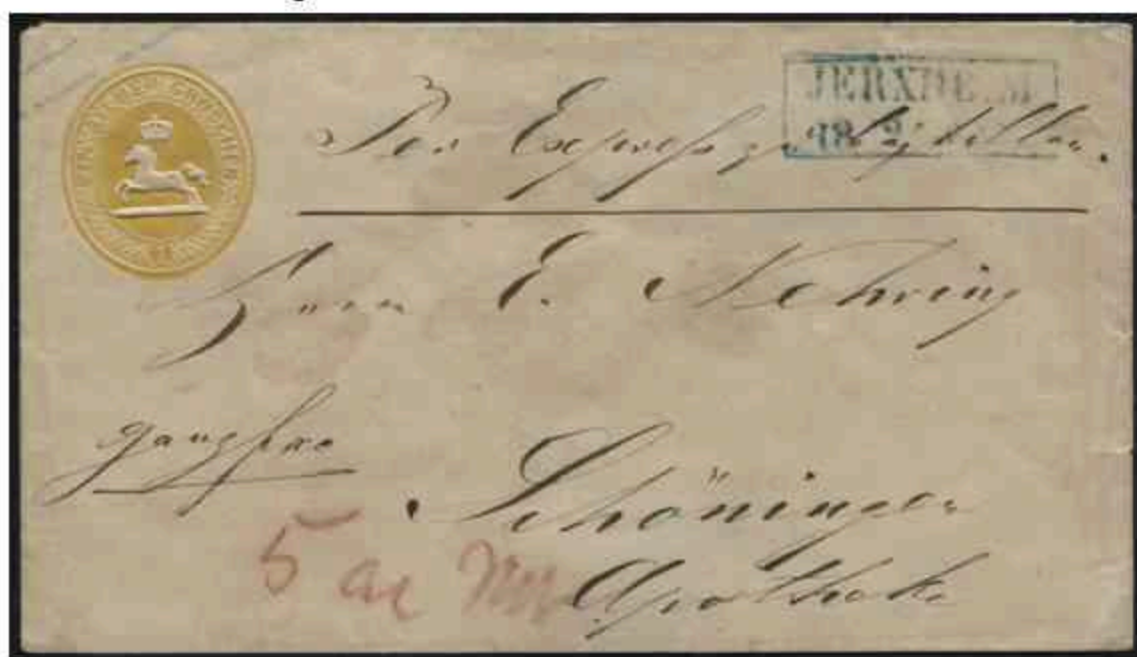 JERXHEIM
18 2
Per Express zu bestellen.
Herrn E. Nehring
ganz frco
Schöningen
5 
Apotheke